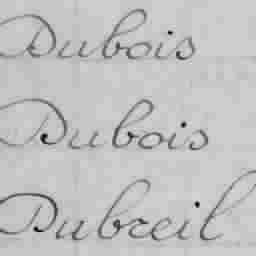 Dubois
Dubois
Dubreil